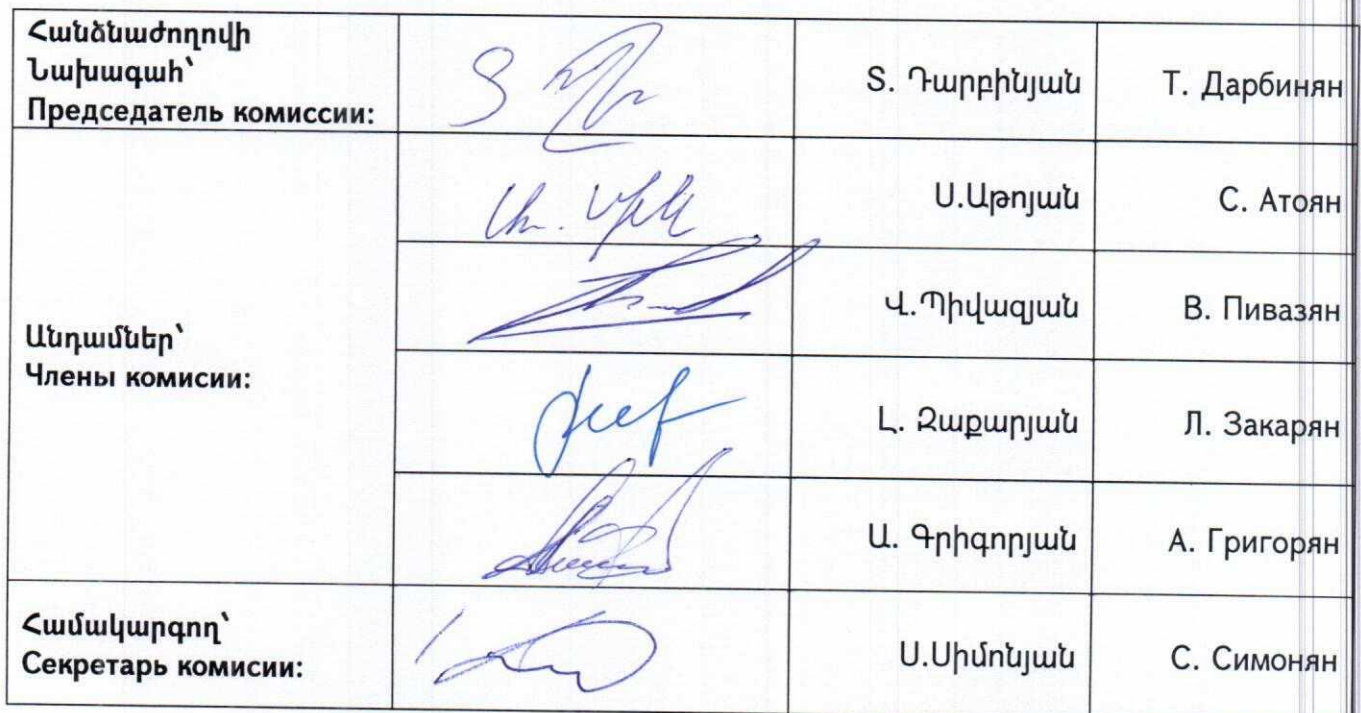 Հանձնաժողովի
Նախագահ՝
Председатель комиссии:
Տ. Դարբինյան
Т. Дарбинян
Ս.Աթոյան
С. Атоян
Անդամներ՝
Члены комисии:
Վ.Պիվազյան
В. Пивазян
Լ. Զաքարյան
Л. Закарян
Ա. Գրիգորյան
А. Григорян
Համակարգող՝
Секретарь комисии:
Ս.Սիմոնյան
С. Симонян